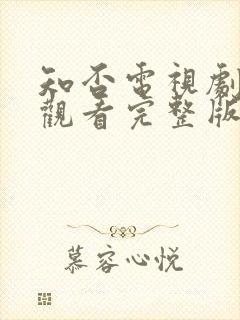 知否電視劇
觀看完整版
慕容心悦